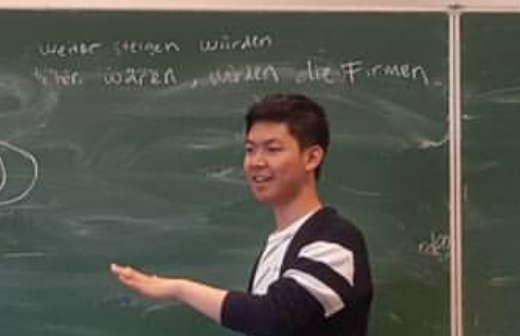 weiter steigen würden
wären, würden die Firmen